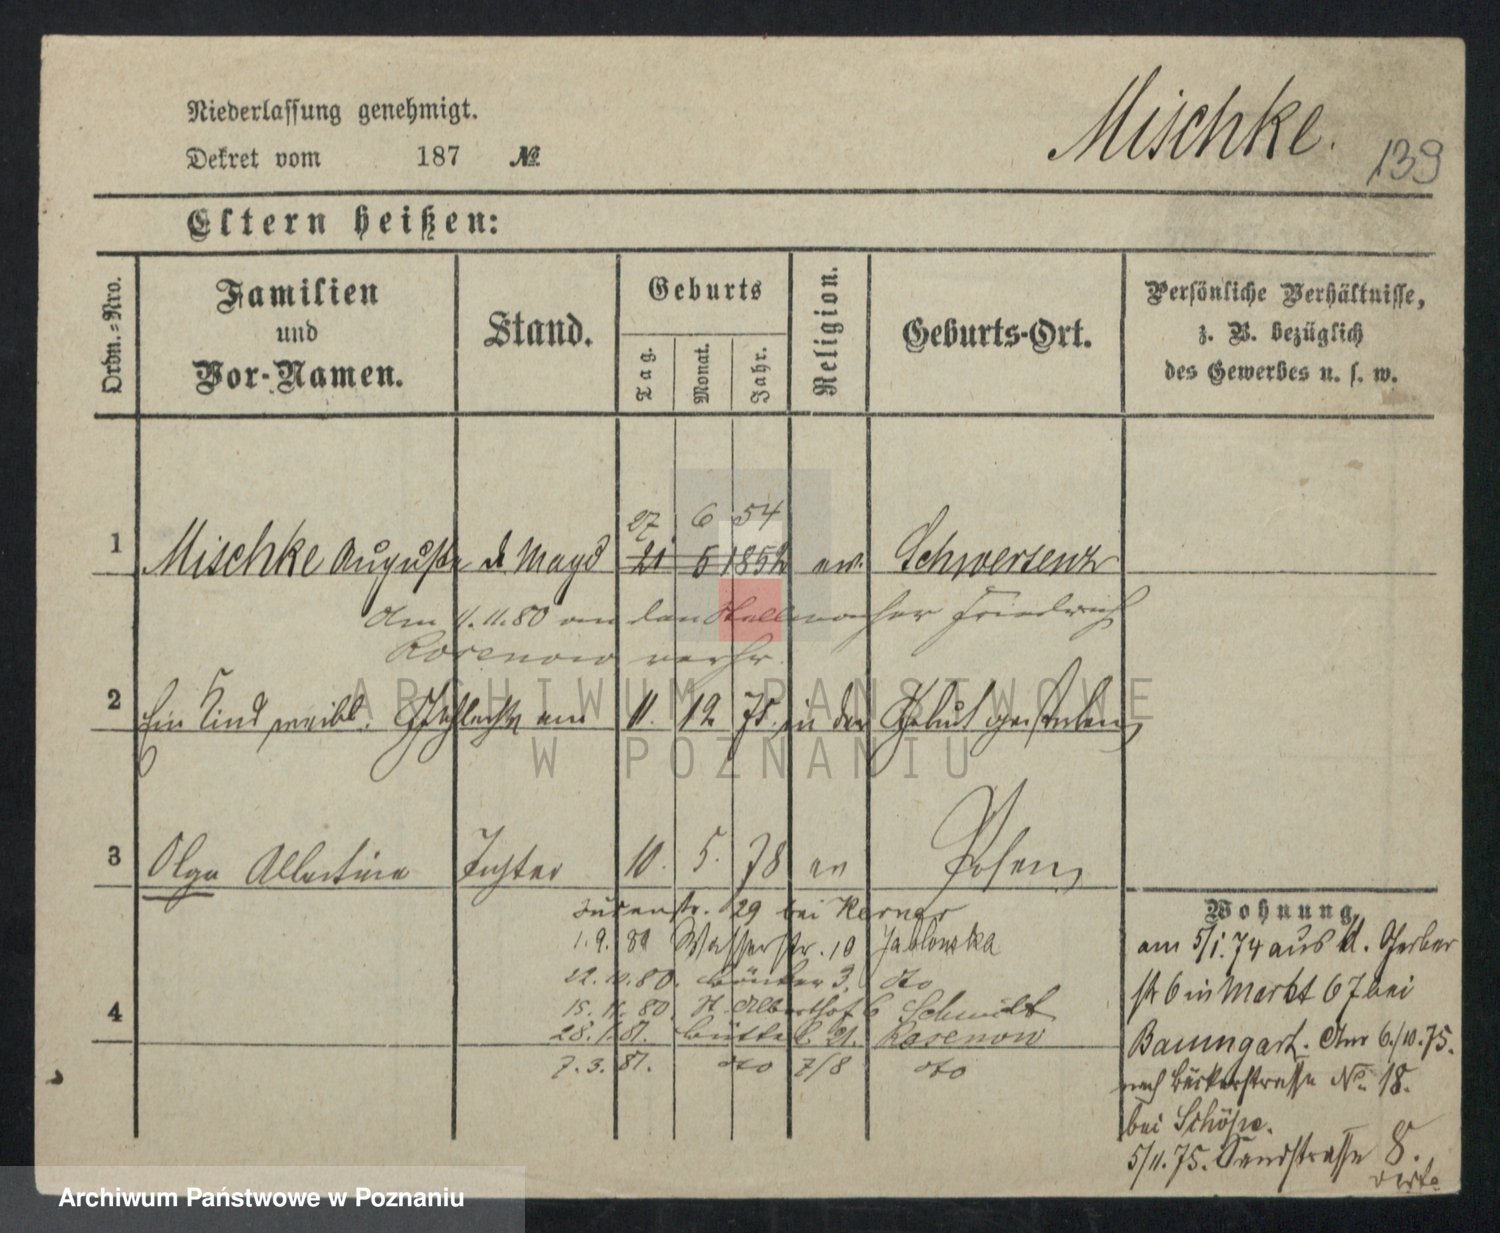 Niederlassung genehmigt.
Mischke.
139
Dekret vom 187 №
Eltern heißen:
Ordn.=Nro.
Familien und Vor-Namen.
Stand.
Geburts
Tag.
Monat.
Jahr.
Religion.
Geburts-Ort.
Persönliche Verhältnisse,
z. B. bezüglich
des Gewerbes u. s. w.
27 6 54
1 Mischke Auguste d Magd 21 6 1852 ev. Schwersenz
Am 11.11.80 an den Stellmacher Friedrich
Rosenow verhr.
2 Ein Kind weibl. Geschlechts am 11. 12 75. in der Geburt gestorben
3 Olga Albertine Tochter 10. 5. 78 ev Posen
Judenstr. 29 bei Kerner
1.9. 80 Wasserstr. 10 Jablonska
22.10.80. 3. dto
15.11.80. St. Adalberthof 6 Schmidt
4
28.1.81. Büttel. 21. Rosenow
7.3.81. dto 7/8 dto
Wohnung.
am 5/1.74 aus kl. Gerber
str 6 in Markt 67 bei
Baumgart. Am 6./10.75.
nach Bäckerstrasse No. 18.
bei Schöpe.
5/11.75. Sandstrasse 8.
ARCHIWUM PAŃSTWOWE
W POZNANIU
Archiwum Państwowe w Poznaniu